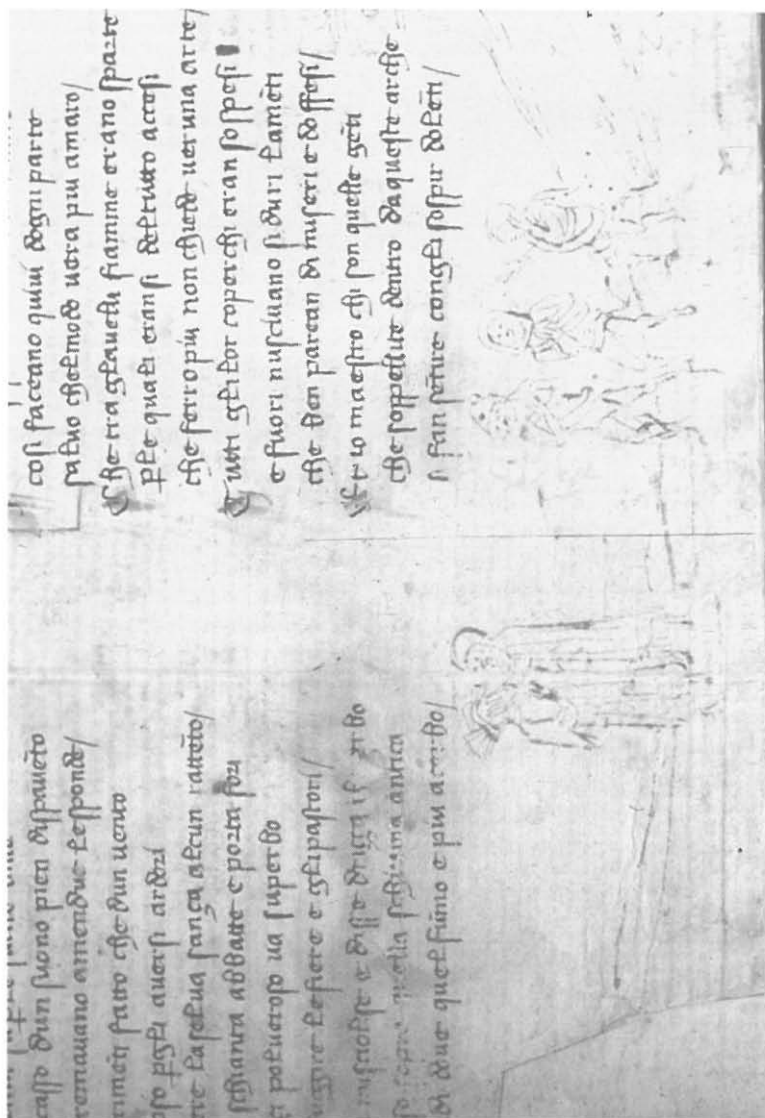 dun suono pien dispauēto
amendue le sponde/
fatto che dun uento
p̱gli auersi ardori
laselua sança alcun rattēto/
schianta abbatte e porta fori
polueroso ua superbo
lefiere e glipastori/
e disse driçça
sopra quella schiuma antica
di doue quel fūmo e piu acerbo/
cosi faceano quiui dogni parte
saluo chelmodo uera piu amaro/
Che tra glauelli fiamme erano sparte
p̱le quali eransi deltutto accesi
che ferro piu non chiede ueruna arte/
Tutti glilor coperchi eran sospesi
e fuori nusciuano si duri lamēti
che ben parean di miseri e doffesi/
Et io maestro chi son quelle gēti
che soppellite dentro daqueste arche
si fan sētire congli sospir dolēti/